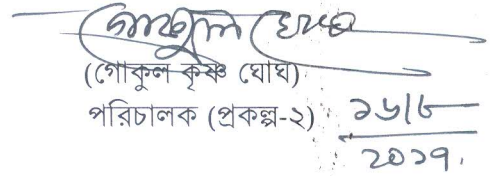 গোকুল ঘোষ
(গোকুল কৃষ্ণ ঘোষ)
পরিচালক (প্রকল্প-২)
১৬/৮
২০১৭.